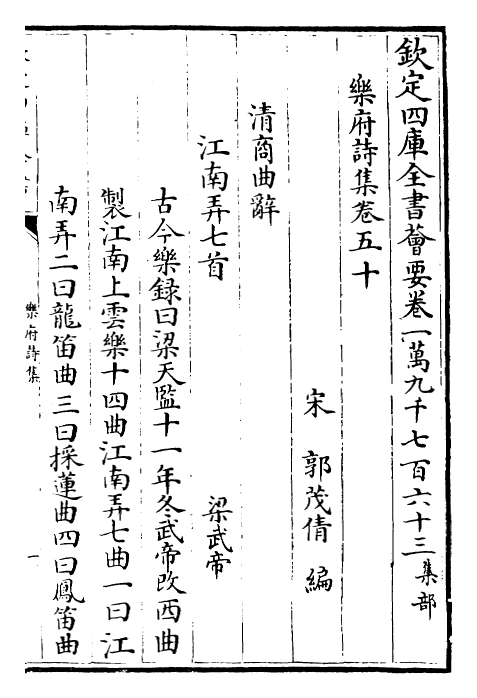 欽定四庫全書薈要卷一萬九千七百六十三集部
樂府詩集卷五十
宋郭茂倩編
清商曲辭
江南弄七首梁武帝
古今樂錄曰梁天監十一年冬武帝改西曲
製江南上雲樂十四曲江南弄七曲一曰江
南弄二曰龍笛曲三曰採蓮曲四曰鳳笛曲
樂府詩集
一